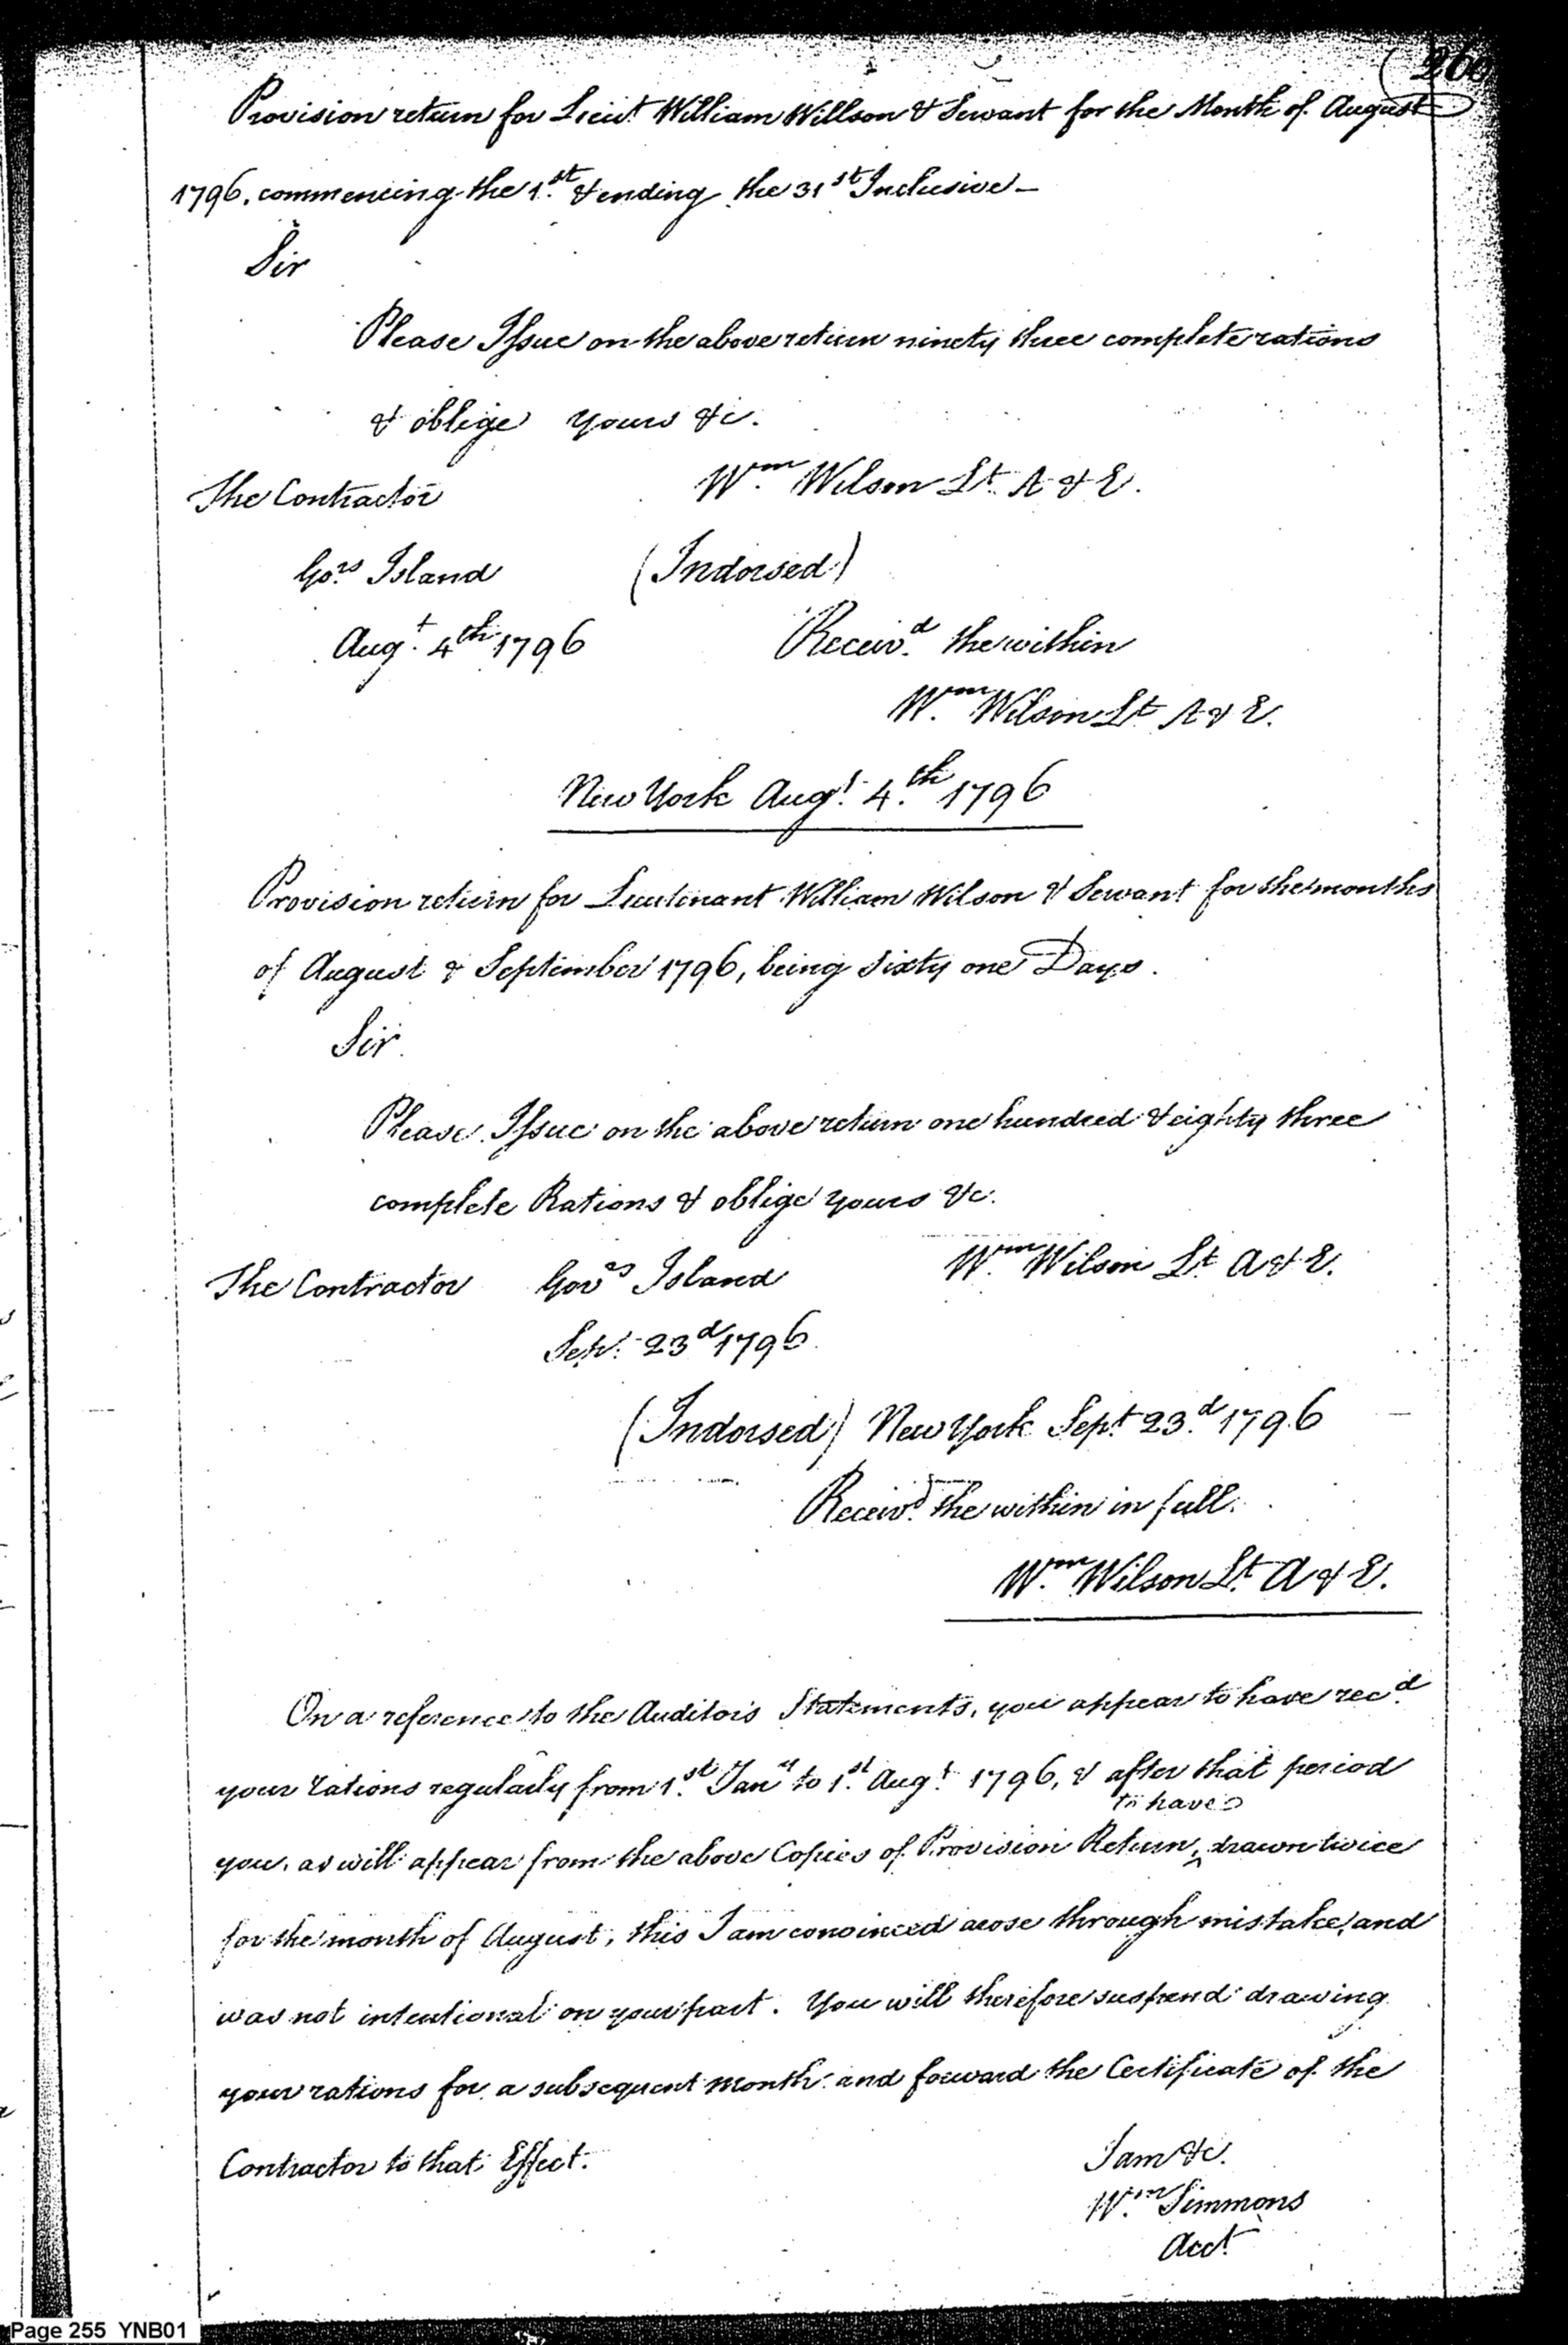 (260
Provision return for Lieut William Willson & Servant for the Month of August
1796, commencing the 1st & ending the 31st Inclusive —
Sir
Please Issue on the above return ninety three complete rations
& oblige yours &c.
The Contractor Wm Wilson Lt A & E.
Gors Island (Indorsed)
Augt 4th 1796 Receivd the within
Wm Wilson Lt A & E.
New York Augt 4th 1796
Provision return for Lieutenant William Wilson & Servant for the months
of August & September 1796, being Sixty one Days.
Sir
Please Issue on the above return one hundred & eighty three
complete Rations & oblige yours &c.
The Contractor Govrs Island Wm Wilson Lt A & E.
Sept 23d 1796
(Indorsed) New York Sept 23d 1796
Receivd the within in full.
Wm Wilson Lt A & E.
On a reference to the Auditors Statements, you appear to have recd
your rations regularly from 1st Jany to 1st Augt 1796, & after that period
to have
you, as will appear from the above Copies of Provision Return, ^ drawn twice
for the month of August, this I am convinced arose through mistake, and
was not intentional on your part. You will therefore suspend drawing
your rations for a subsequent month and forward the Certificate of the
Contractor to that Effect.
I am &c.
Wm Simmons
Acct
Page 255 YNB01